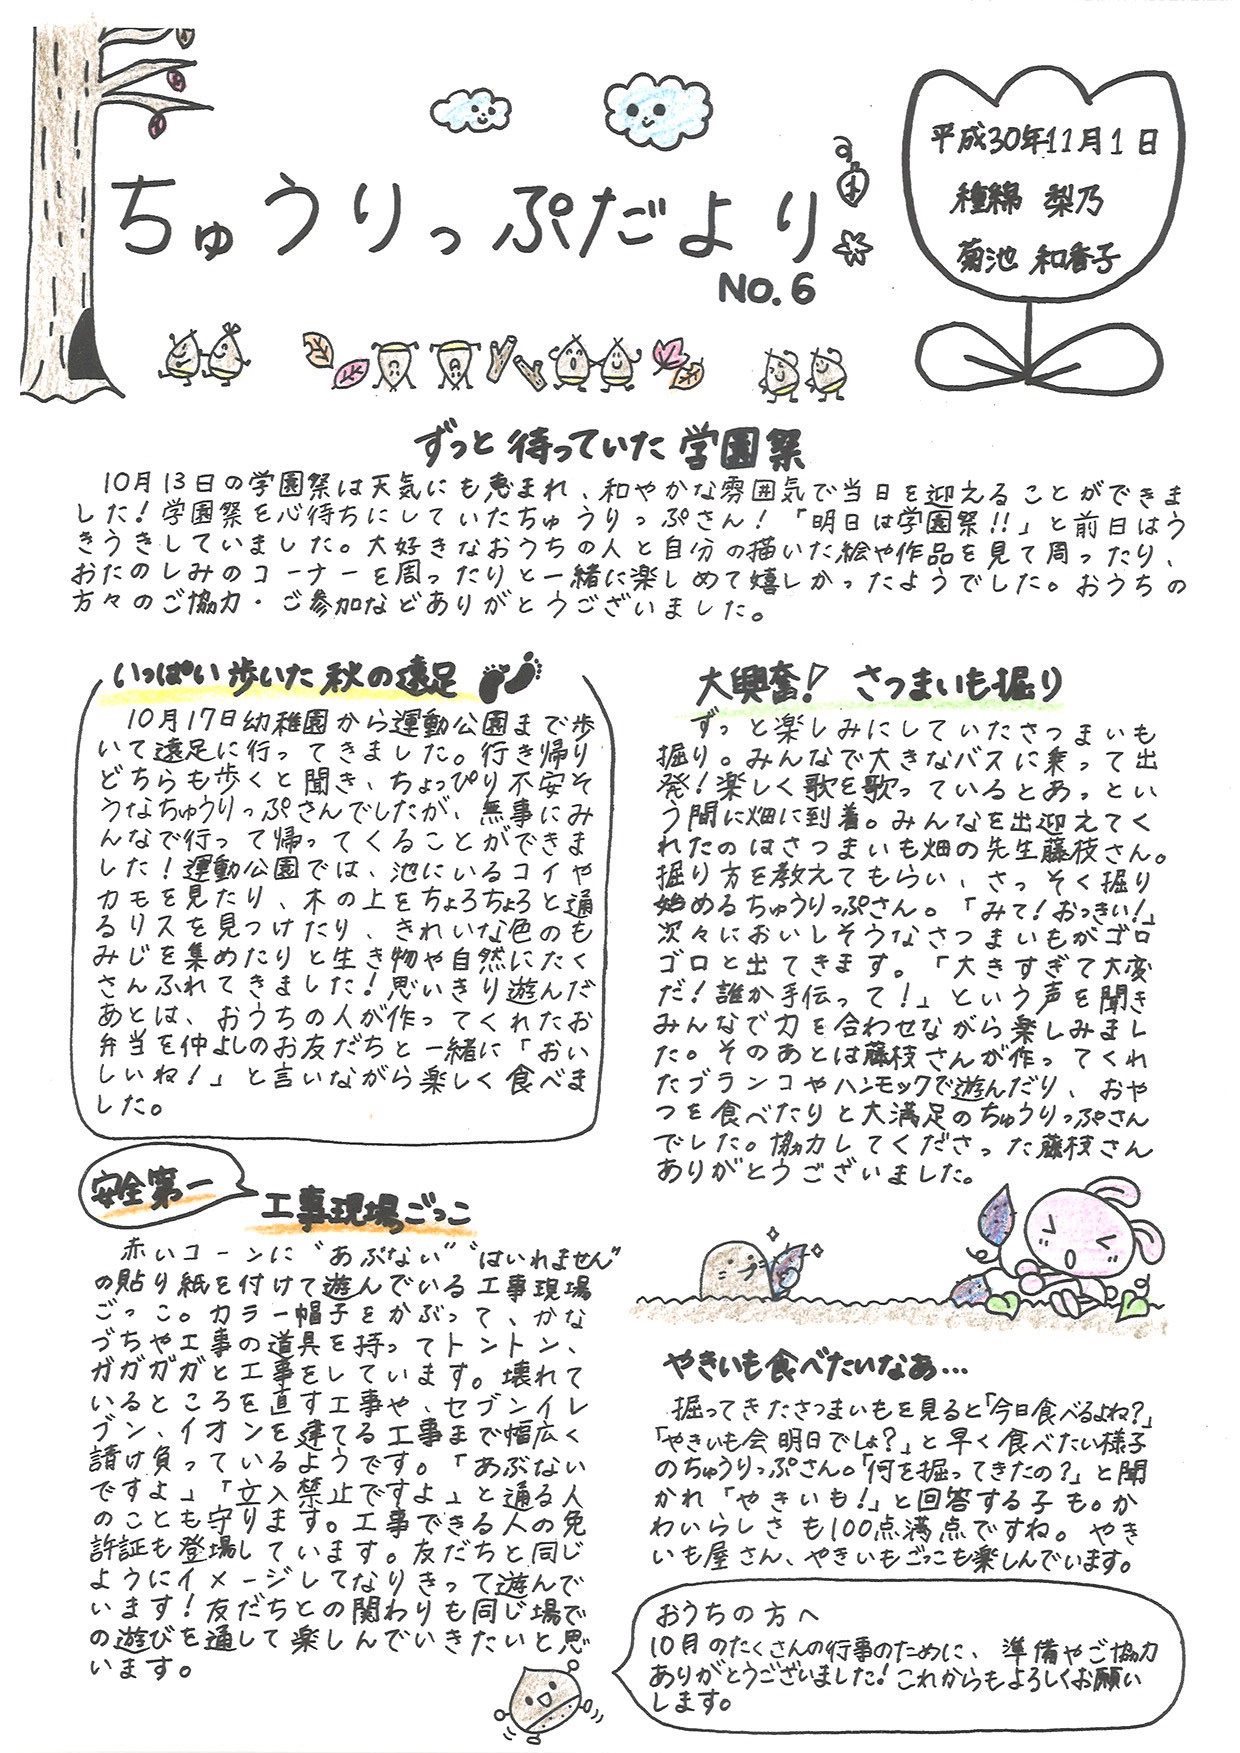 平成30年11月1日
種綿 梨乃
菊池 和香子
ちゅうりっぷだより
NO.6
ずっと待っていた学園祭
10月13日の学園祭は天気にも恵まれ、和やかな雰囲気で当日を迎えることができま
した！学園祭を心待ちにしていたちゅうりっぷさん！「明日は学園祭!!」と前日はう
きうきしていました。大好きなおうちの人と自分の描いた絵や作品を見て周ったり、
おたのしみのコーナーを周ったりと一緒に楽しめて嬉しかったようでした。おうちの
方々のご協力・ご参加などありがとうございました。
いっぱい歩いた秋の遠足
10月17日幼稚園から運動公園まで歩
いて遠足に行ってきました。行き帰り
どちらも歩くと聞き、ちょっぴり不安そ
うなちゅうりっぷさんでしたが、無事にみ
んなで行って帰ってくることができま
した！運動公園では、池にいるコイや
カモを見たり、木の上をちょろちょろと通
るリスを見つけたり、きれいな色のも
みじを集めたりと生き物や自然にたく
さんふれてきました！思いきり遊んだ
あとは、おうちの人が作ってくれたお
弁当を仲よしのお友だちと一緒に「おい
しいね！」と言いながら楽しく食べま
した。
安全第一
工事現場ごっこ
赤いコーンに“あぶない”“はいれません”
の貼り紙を付けて遊んでいる工事現場
ごっこ。カラー帽子をかぶって、かな
づちや工事の道具を持ってトントン、
ガガガガと工事をしています。壊れて
いるところを直す工事や、セブンイレ
ブン、イオンを建てる工事まで幅広く
請け負っているようです。「あぶない
ですよ」「立入禁止ですよ」と通る人
のことも守ります。工事できる人の免
許証も登場しています。友だちと同じ
ようにイメージしてなりきって遊んで
います！友だちとの関わりも同じ場で
の遊びを通して楽しんでいきたいと思
います。
大興奮！さつまいも掘り
ずっと楽しみにしていたさつまいも
掘り。みんなで大きなバスに乗って出
発！楽しく歌を歌っているとあっとい
う間に畑に到着。みんなを出迎えてく
れたのはさつまいも畑の先生藤枝さん。
掘り方を教えてもらい、さっそく掘り
始めるちゅうりっぷさん。「みて！おっきい！」
次々においしそうなさつまいもがゴロ
ゴロと出てきます。「大きすぎて大変
だ！誰か手伝って！」という声を聞き
みんなで力を合わせながら楽しみまし
た。そのあとは藤枝さんが作ってくれ
たブランコやハンモックで遊んだり、おや
つを食べたりと大満足のちゅうりっぷさん
でした。協力してくださった藤枝さん
ありがとうございました。
やきいも食べたいなあ…
掘ってきたさつまいもを見ると「今日食べるよね？」
「やきいも会明日でしょ？」と早く食べたい様子
のちゅうりっぷさん。「何を掘ってきたの？」と聞
かれ「やきいも！」と回答する子も。か
わいらしさも100点満点ですね。やき
いも屋さん、やきいもごっこも楽しんでいます。
おうちの方へ
10月のたくさんの行事のために、準備やご協力
ありがとうございました！これからもよろしくお願い
します。